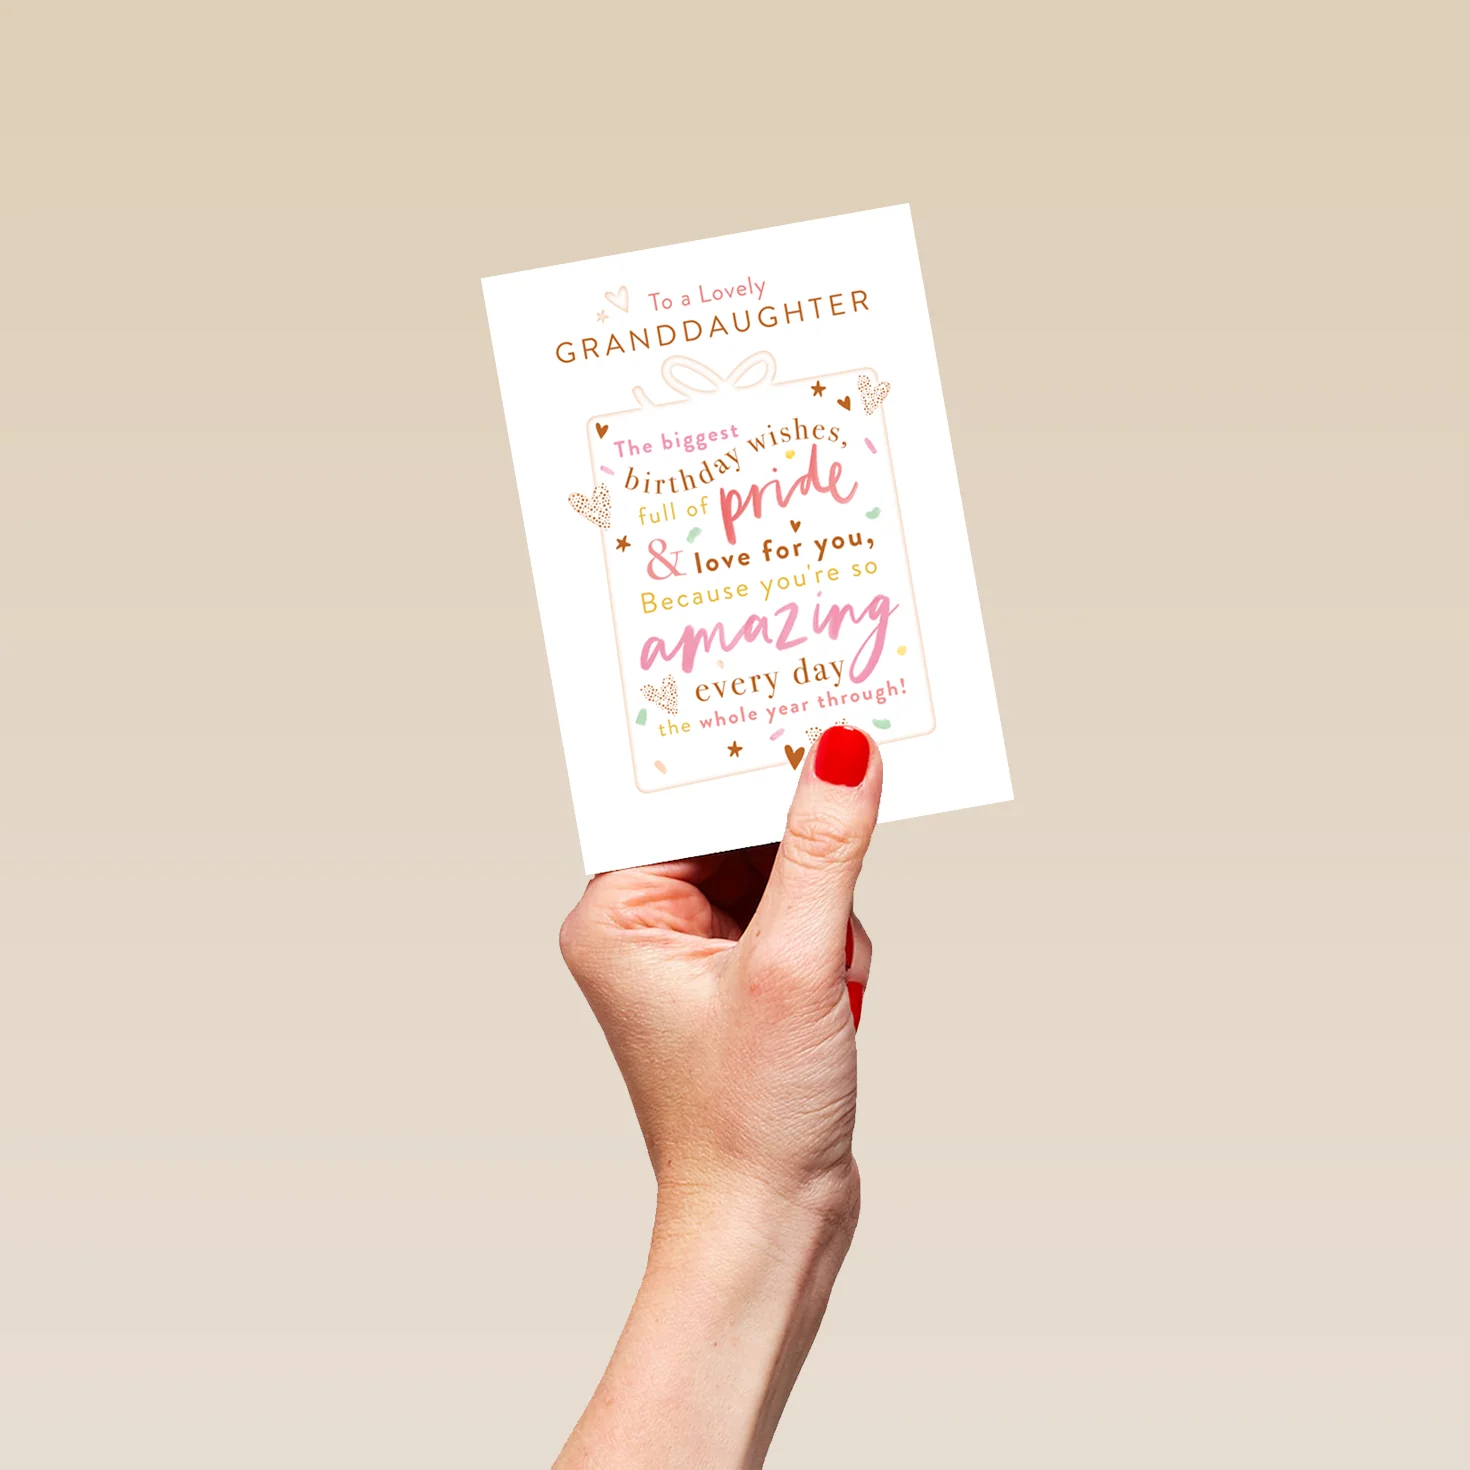 To a Lovely
GRANDDAUGHTER
The biggest
birthday wishes,
full of pride
& love for you,
Because you're so
amazing
every day
the whole year through!